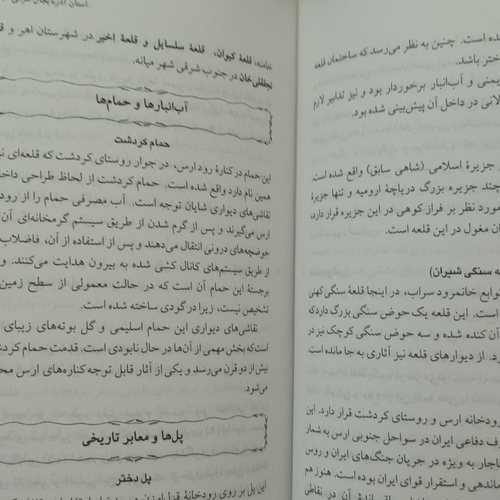 ده است. چنین به نظر می‌رسد که ساختمان قلعه
ختر باشد.
یمنی و آب‌انبار برخوردار بود و نیز تدابیر لازم
لانی در داخل آن پیش‌بینی شده بود.
جزیرهٔ اسلامی (شاهی سابق) واقع شده است.
چند جزیره بزرگ دریاچهٔ ارومیه و تنها جزیرهٔ
مورد نظر بر فراز کوهی در این جزیره قرار دارد.
ان مغول در این قلعه است.
ه سنگی شیران)
توابع خانمرود سراب، در اینجا قلعهٔ سنگی کهنی
است. این قلعه یک حوض سنگی بزرگ دارد که
آن کنده شده و سه حوض سنگی کوچک نیز در
د. از دیوارهای قلعه نیز آثاری به جا مانده است.
رودخانه ارس و روستای کردشت قرار دارد. این
ف دفاعی ایران در سواحل جنوبی ارس به شمار
قاجار به ویژه در جریان جنگ‌های ایران و روس
ماندهی و استقرار قوای ایران بوده است. هنوز هم
آن در نقاطی
استان آذربایجان شرقی
خامنه، قلعهٔ کیوان، قلعهٔ سلسایل و قلعهٔ اخیر در شهرستان اهر و
نجفقلی‌خان در جنوب شرقی شهر میانه.
آب‌انبارها و حمام‌ها
حمام کردشت
این حمام در کنارهٔ رود ارس، در جوار روستای کردشت که قلعه‌ای نیز
همین نام دارد واقع شده است. حمام کردشت از لحاظ طراحی داخل
نقاشی‌های دیواری شایان توجه است. آب مصرفی حمام را از رود
ارس می‌گیرند و پس از گرم شدن از طریق سیستم گرمخانه‌ای آن
حوضچه‌های درونی انتقال می‌دهند و پس از استفاده از آن، فاضلاب
از طریق سیستم‌های کانال کشی شده به بیرون هدایت می‌کنند. و
برجستهٔ این حمام آن است که در حالت معمولی از سطح زمین
تشخیص نیست، زیرا در گودی ساخته شده است.
نقاشی‌های دیواری این حمام اسلیمی و گل بوته‌های زیبای
است که بخش مهمی از آن‌ها در حال نابودی است. قدمت حمام کردشت
بیش از دو قرن می‌رسد و یکی از آثار قابل توجه کناره‌های ارس مح
می‌شود.
پل‌ها و معابر تاریخی
پل دختر
این پل بر روی رودخانهٔ